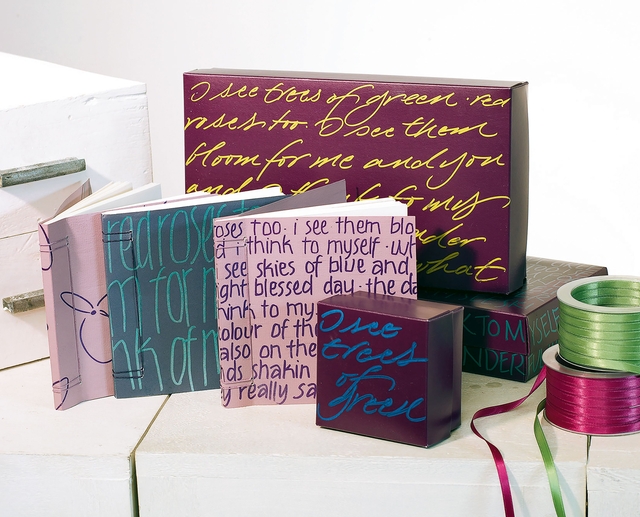 I see trees of green. red
roses too. I see them
bloom for me and you
and
to my
what
red roses
m for m
nk of m
oses too. i see them blo
d i think to myself. wh
see skies of blue and
ght blessed day. the da
ink to my
olour of th
also on the
ds shakin
y really sa
I see
trees
of
green
K TO MYSELF
NDER